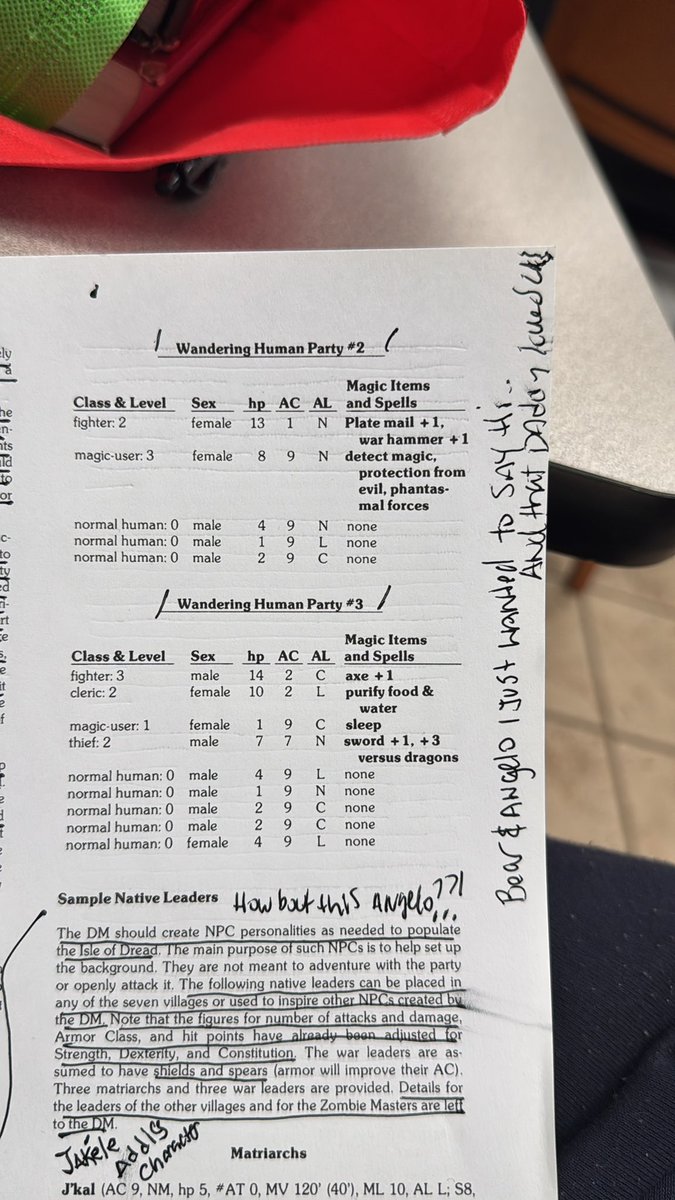 Wandering Human Party #2
Class & Level Sex hp AC AL Magic Items and Spells
fighter: 2 female 13 1 N Plate mail +1,
war hammer +1
magic-user: 3 female 8 9 N detect magic,
protection from
evil, phantas-
mal forces
normal human: 0 male 4 9 N none
normal human: 0 male 1 9 L none
normal human: 0 male 2 9 C none
Wandering Human Party #3
Class & Level Sex hp AC AL Magic Items and Spells
fighter: 3 male 14 2 C axe +1
cleric: 2 female 10 2 L purify food &
water
magic-user: 1 female 1 9 C sleep
thief: 2 male 7 7 N sword +1, +3
versus dragons
normal human: 0 male 4 9 L none
normal human: 0 male 1 9 N none
normal human: 0 male 2 9 C none
normal human: 0 male 2 9 C none
normal human: 0 female 4 9 L none
Sample Native Leaders
How bout this ANgelo??!...
The DM should create NPC personalities as needed to populate
the Isle of Dread. The main purpose of such NPCs is to help set up
the background. They are not meant to adventure with the party
or openly attack it. The following native leaders can be placed in
any of the seven villages or used to inspire other NPCs created by
the DM. Note that the figures for number of attacks and damage,
Armor Class, and hit points have already been adjusted for
Strength, Dexterity, and Constitution. The war leaders are as-
sumed to have shields and spears (armor will improve their AC).
Three matriarchs and three war leaders are provided. Details for
the leaders of the other villages and for the Zombie Masters are left
to the DM.
Character
Matriarchs
J'kal (AC 9, NM, hp 5, #AT 0, MV 120' (40'), ML 10, AL L; S8,
Bear & ANgelo I just wanted to say Hi...
And that Daddy loved